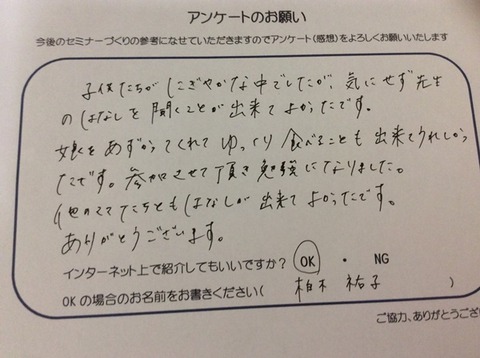 アンケートのお願い
今後のセミナーづくりの参考になせていただきますのでアンケート(感想)をよろしくお願いいたします
子供たちがにぎやかな中でしたが、気にせず先生
のはなしを聞くことが出来てよかったです。
娘をあずかってくれてゆっくり食べることも出来てうれしかっ
たです。参加させて頂き勉強になりました。
他のママたちともはなしが出来てよかったです。
ありがとうございます。
インターネット上で紹介してもいいですか? OK ・ NG
OKの場合のお名前をお書きください( 柏木 祐子 )
ご協力、ありがとうござい